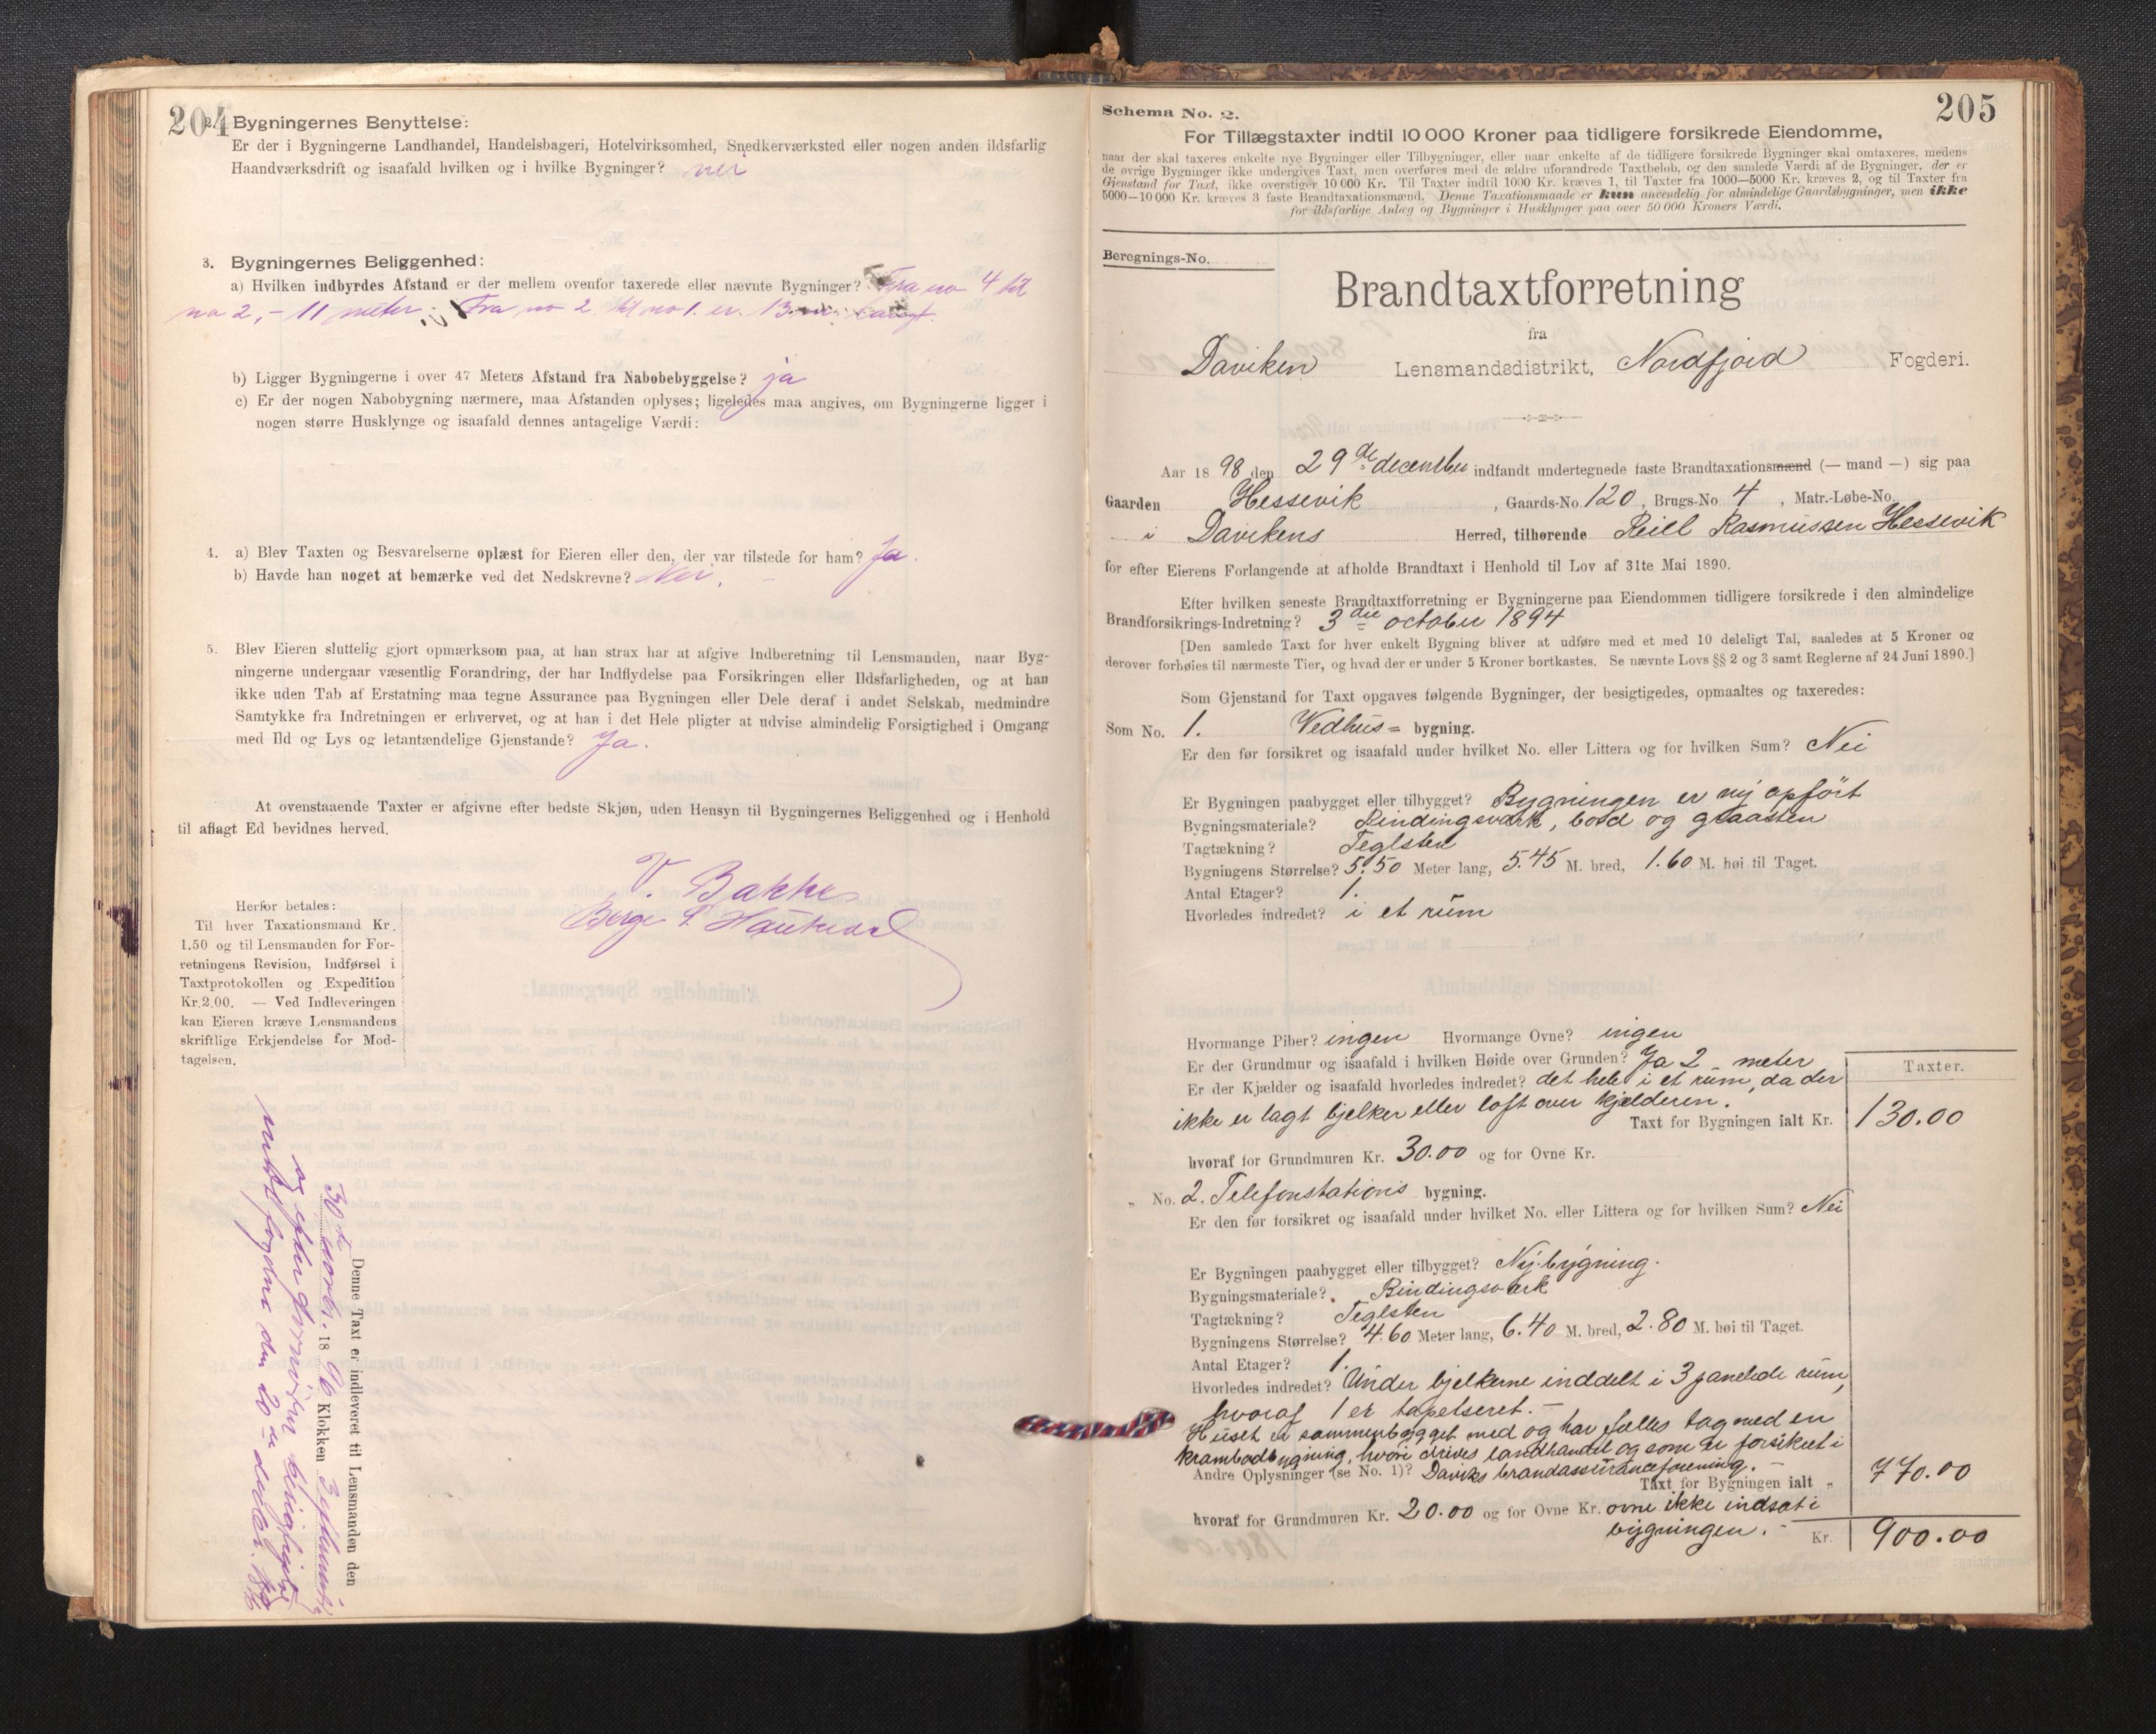 204
2. Bygningernes Benyttelse:
Er der i Bygningerne Landhandel, Handelsbageri, Hotelvirksomhed, Snedkerværksted eller nogen anden ildsfarlig
Haandværksdrift og isaafald hvilken og i hvilke Bygninger? nei
3. Bygningernes Beliggenhed:
a) Hvilken indbyrdes Afstand er der mellem ovenfor taxerede eller nævnte Bygninger? Fra no 4 til
no 2, - 11 meter. Fra no 2 til no 1. er. 13
b) Ligger Bygningerne i over 47 Meters Afstand fra Nabobebyggelse? ja
c) Er der nogen Nabobygning nærmere, maa Afstanden oplyses; ligeledes maa angives, om Bygningerne ligger i
nogen større Husklynge og isaafald dennes antagelige Værdi:
4. a) Blev Taxten og Besvarelserne oplæst for Eieren eller den, der var tilstede for ham? Ja.
b) Havde han noget at bemærke ved det Nedskrevne? Nei.
5. Blev Eieren sluttelig gjort opmærksom paa, at han strax har at afgive Indberetning til Lensmanden, naar Byg-
ningerne undergaar væsentlig Forandring, der har Indflydelse paa Forsikringen eller Ildsfarligheden, og at han
ikke uden Tab af Erstatning maa tegne Assurance paa Bygningen eller Dele deraf i andet Selskab, medmindre
Samtykke fra Indretningen er erhvervet, og at han i det Hele pligter at udvise almindelig Forsigtighed i Omgang
med Ild og Lys og letantændelige Gjenstande? Ja.
At ovenstaaende Taxter er afgivne efter bedste Skjøn, uden Hensyn til Bygningernes Beliggenhed og i Henhold
til aflagt Ed bevidnes herved.
V. Bakke
Børge
Herfor betales:
Til hver Taxationsmand Kr.
1.50 og til Lensmanden for For-
retningens Revision, Indførsel i
Taxtprotokollen og Expedition
Kr.2.00. — Ved Indleveringen
kan Eieren kræve Lensmandens
skriftlige Erkjendelse for Mod-
tagelsen.
Denne Taxt er indleveret til Lensmanden den
30te novbr. 1896 Klokken 3 eftermid.
og efter
fogden den 20de decbr. 1896
205
Schema No. 2.
For Tillægstaxter indtil 10 000 Kroner paa tidligere forsikrede Eiendomme,
naar der skal taxeres enkelte nye Bygninger eller Tilbygninger, eller naar enkelte af de tidligere forsikrede Bygninger skal omtaxeres, medens
de øvrige Bygninger ikke undergives Taxt, men overføres med de ældre uforandrede Taxtbeløb, og den samlede Værdi af de Bygninger, der er
Gjenstand for Taxt, ikke overstiger 10 000 Kr. Til Taxter indtil 1000 Kr. kræves 1, til Taxter fra 1000—5000 Kr. kræves 2, og til Taxter fra
5000—10 000 Kr. kræves 3 faste Brandtaxationsmænd. Denne Taxationsmaade er kun anvendelig for almindelige Gaardsbygninger, men ikke
for ildsfarlige Anlæg og Bygninger i Husklynger paa over 50 000 Kroners Værdi.
Beregnings-No.
Brandtaxtforretning
fra
Daviken Lensmandsdistrikt, Nordfjord Fogderi.
Aar 1898 den 29de december indfandt undertegnede faste Brandtaxationsmænd (— mand —) sig paa
Gaarden Hessevik, Gaards-No. 120, Brugs-No. 4, Matr.-Løbe-No.
i Davikens Herred, tilhørende Reill Rasmussen Hessevik
for efter Eierens Forlangende at afholde Brandtaxt i Henhold til Lov af 31te Mai 1890.
Efter hvilken seneste Brandtaxtforretning er Bygningerne paa Eiendommen tidligere forsikrede i den almindelige
Brandforsikrings-Indretning? 3die october 1894
[Den samlede Taxt for hver enkelt Bygning bliver at udføre med et med 10 deleligt Tal, saaledes at 5 Kroner og
derover forhøies til nærmeste Tier, og hvad der er under 5 Kroner bortkastes. Se nævnte Lovs §§ 2 og 3 samt Reglerne af 24 Juni 1890.]
Som Gjenstand for Taxt opgaves følgende Bygninger, der besigtigedes, opmaaltes og taxeredes:
Som No. 1. Vedhus= bygning.
Er den før forsikret og isaafald under hvilket No. eller Littera og for hvilken Sum? Nei
Er Bygningen paabygget eller tilbygget? Bygningen er ny opført
Bygningsmateriale? Bindingsværk, bord og graasten
Tagtækning? Teglsten
Bygningens Størrelse? 5.50 Meter lang, 5.45 M. bred, 1.60 M. høi til Taget.
Antal Etager? 1.
Hvorledes indredet? i et rum
Hvormange Piber? ingen Hvormange Ovne? ingen
Er der Grundmur og isaafald i hvilken Høide over Grunden? Ja 2 meter
Taxter.
Er der Kjælder og isaafald hvorledes indredet? det hele i et rum, da der
ikke er lagt bjelker eller loft over kjælderen.
Taxt for Bygningen ialt Kr. 130.00
hvoraf for Grundmuren Kr. 30.00 og for Ovne Kr.
" No. 2. Telefonstations bygning.
Er den før forsikret og isaafald under hvilket No. eller Littera og for hvilken Sum? Nei
Er Bygningen paabygget eller tilbygget? Ny bygning.
Bygningsmateriale? Bindingsverk
Tagtækning? Teglsten
Bygningens Størrelse? 4.60 Meter lang, 6.40 M. bred, 2.80 M. høi til Taget.
Antal Etager? 1.
Hvorledes indredet? Under bjelkerne inddelt i 3 panelede rum,
hvoraf 1 er tapetseret. —
Huset er sammenbygget med og har fælles tag med en
krambodbygning, hvori drives landhandel og som er forsikret i
Andre Oplysninger (se No. 1)? Daviks brandassuranceforening. —
Taxt for Bygningen ialt " 770.00
hvoraf for Grundmuren Kr. 20.00 og for Ovne Kr. ovne ikke indsat i
bygningen. —
Kr. 900.00